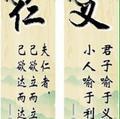 仁
夫仁者
己欲立而立
己欲达而达
义
君子喻于义
小人喻于利